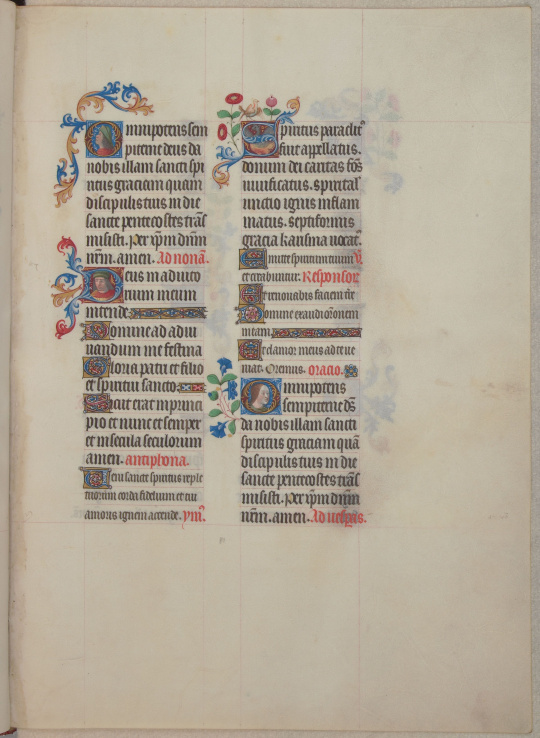 Omnipotens sem
piterne deus da
nobis illam sancti spi
ritus graciam quam
discipulis tuis in die
sancte penteco̅stes trās
misisti. Per ipm̄ dn̄m
nr̄m. amen. Ad nonā.
Deus in adiuto
rium meum
intende.
Domine ad adiu
uandum me festina
Gloria patri et filio
et spiritui sancto.
Sicut erat in princi
pio et nunc et semper
et in secula seculorum
amen. antiphona.
Ueni sancte spiritus reple
tuorum corda fidelium et tui
amoris ignem accende. ymꝰ.
Spiritus paraclitꝰ
fuit appellatus.
donum dei caritas fōs
viuificatus. spiritalꝭ
unctio ignis inflam
matus. septiformis
gracia karisma uocatꝰ.
Emitte spiritum tuum V̄
et creabuntur. Responsor
Et renouabis faciem tr̄e
Domine exaudi or̄onem
meam.
Et clamor meus ad te ue
niat. Oremus. oracio.
Omnipotens
sempiterne ds̄
da nobis illam sancti
spiritus graciam quā
discipulis tuis in die
sancte pentecostes trās
misisti. Per ipm̄ dn̄m
nr̄m. amen. Ad vesp̄as.